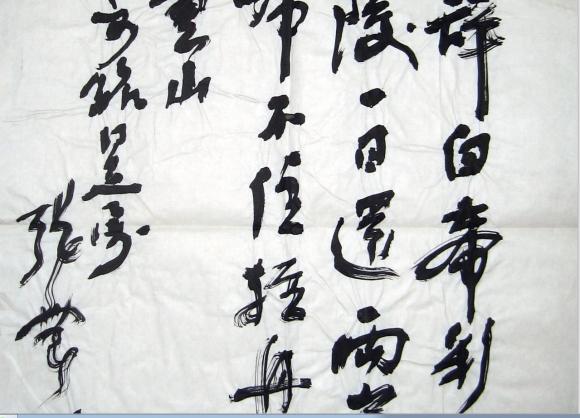 辞白帝彩
陵一日還兩岸
啼不住輕舟
重山
張